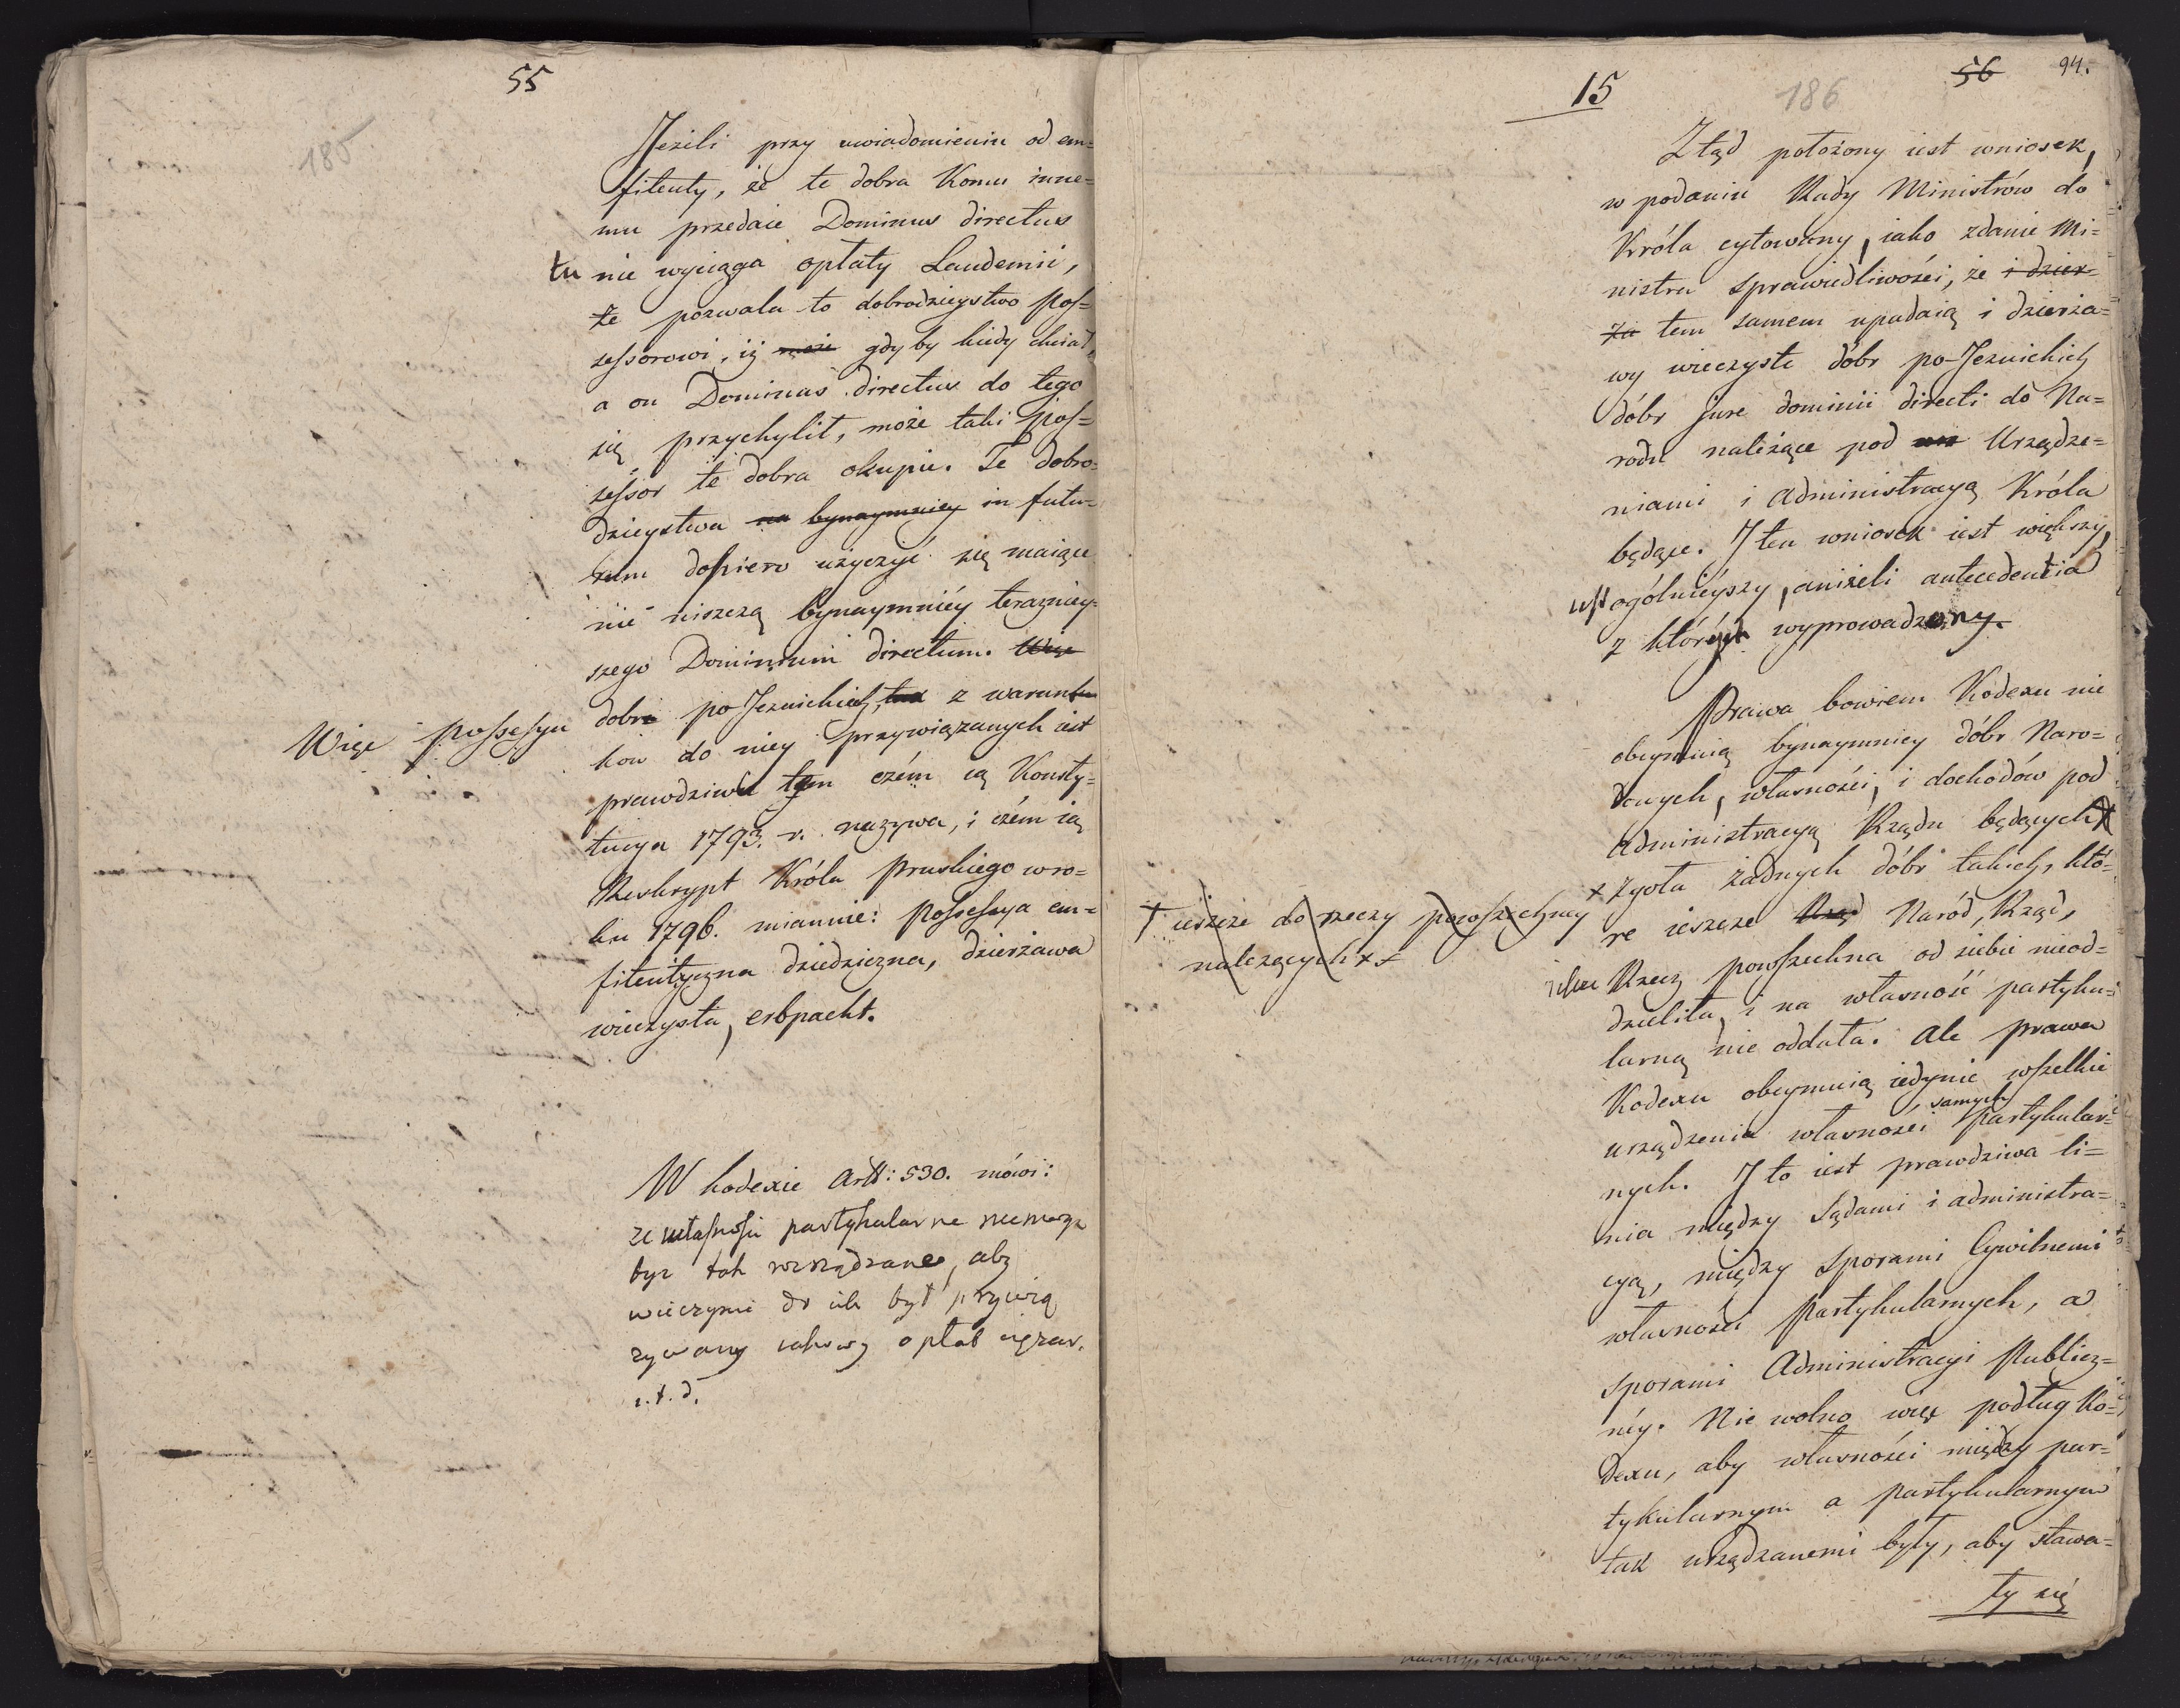 55
185
Jeżeli przy uwiadomieniu od em=
fiteuty, że te dobra Komu inne=
mu przedaie Dominus directus
tu nie wyciąga opłaty Laudemii,
że pozwala to dobrodzieystwo pos=
sessorowi, iż gdy by kiedy chciał,
a on Dominus directus do tego
się przychylił, może taki pos=
sessor te dobra okupić. Te dobro=
dzieystwa na bynaymniey in futu=
rum dopiero użyczyć się maiące
nie niszczą bynaymniéy terazniey=
szego Dominium directum. Więc
Więc possessya dobr po Jezuickich, z warun
kow do niey przywiązanych iest
prawdziwie tem czém ią Konsty=
tucya 1793. r. nazywa, i czém ią
Reskrypt Króla Pruskiego w ro=
ku 1796. mianuie: possessya em=
fiteutyczna dziedziczna, dzierżawa
wieczysta, erbpacht.
W kodexie Artt: 530. mówi:
ze własnosci partykularne niemogą
byc tak rozrządzane, aby
wiecznie do ich był przywią
zywany iakowy opłat
i.t.d.
15
186
56 94.
Ztąd położony iest wniosek,
w podaniu Rady Ministrów do
Króla cytowany, iako zdanie Mi=
nistra sprawiedliwości, że i dzier=
ża tem samem upadaią i dzierża=
wy wieczyste dóbr po-Jezuickich
dóbr jure dominii directi do Na=
rodu należące pod Urządze=
niami i Administracyą Króla
będące. I ten wniosek iest większy,
ogólnieyszy, aniżeli antecedentia
z których wyprowadzony.
Prawa bowiem Kodexu nie
obeymuią bynaymniey dóbr Naro=
dowych, własności, i dochodów pod
Administracyą Rządu będących
† ieszcze do rzeczy powszechney
należących ××
× zgoła żadnych dóbr takich, któ=
re ieszcze Rząd Naród, Rząd,
Rzecz powszechna od siebie nieod=
dzieliła, i na własność partyku=
larną nie oddała. Ale prawa
Kodexu obeymuią iedynie wszelkie
urządzenia własności samych partykular=
nych. I to iest prawdziwa li=
nia między Sądami i administra=
cyą, między Sporami Cywilnemi
własności partykularnych, a
sporami Administracyi Publicz=
néy. Nie wolno więc podług Ko=
dexu, aby własności między par=
tykularnym a partykularnym
tak urządzanemi były, aby stawa=
ły się